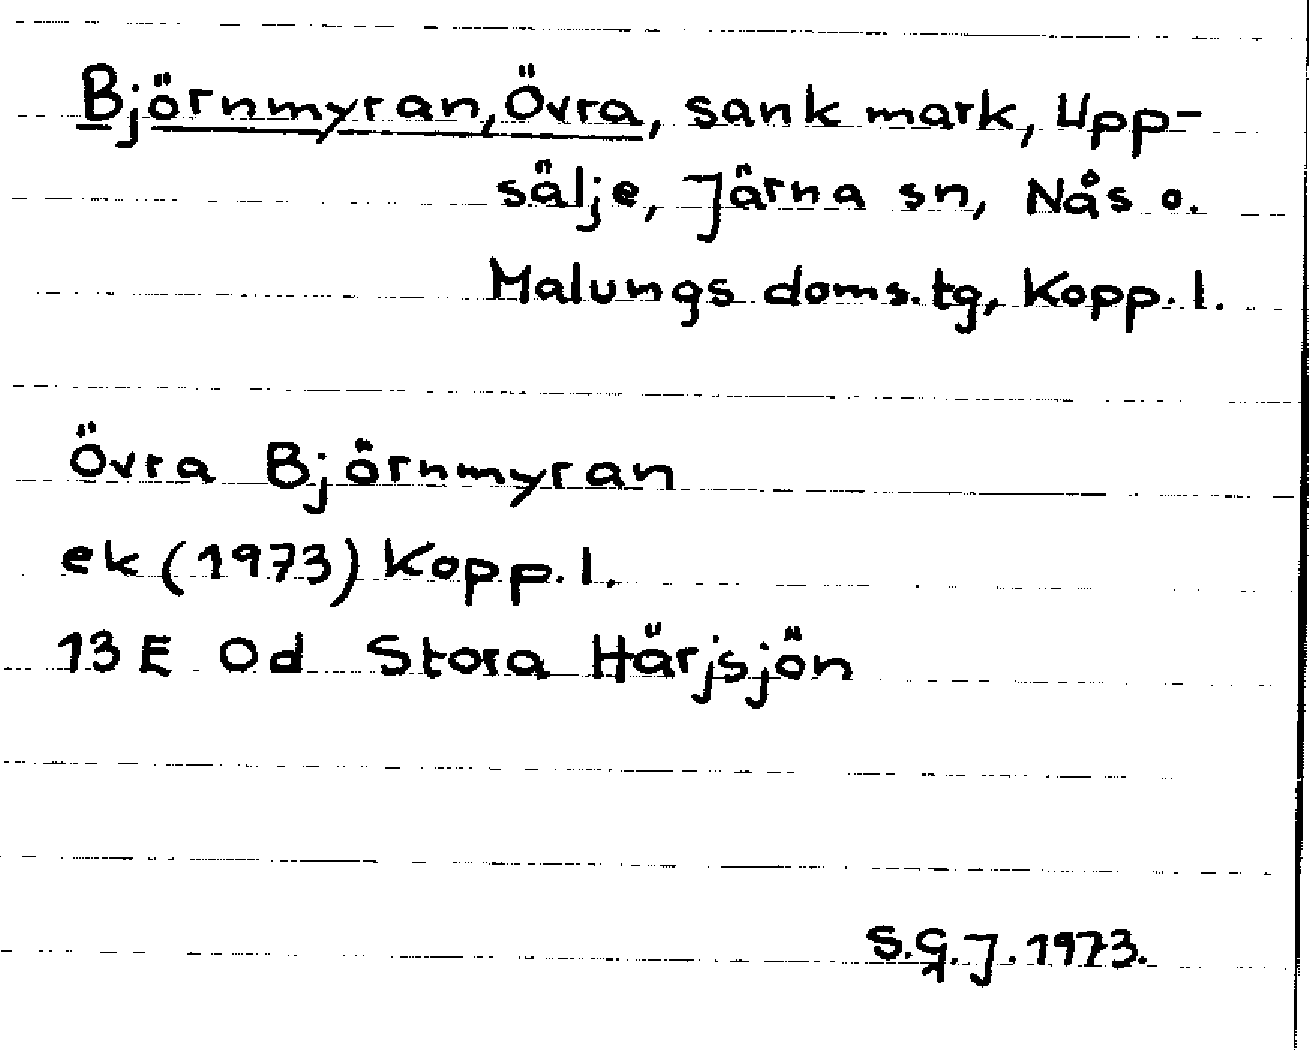 Björnmyran, Övra, sank mark, Upp-
sälje, Järna sn, Nås o.
Malungs doms.tg, Kopp. l.
Övra Björnmyran
ek (1973) Kopp. l.
13 E 0d Stora Härjsjön
S.G.J. 1973.